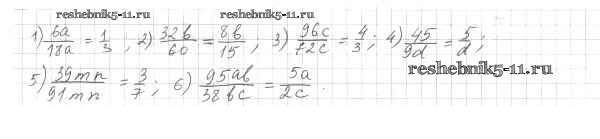 reshebnik5-11.ru reshebnik5-11.ru
1) 6a/18a = 1/3 ; 2) 32b/60 = 8b/15 ; 3) 96c/72c = 4/3 ; 4) 45/9d = 5/d ;
5) 39mn/91mn = 3/7 ; 6) 95ab/38bc = 5a/2c .
reshebnik5-11.ru